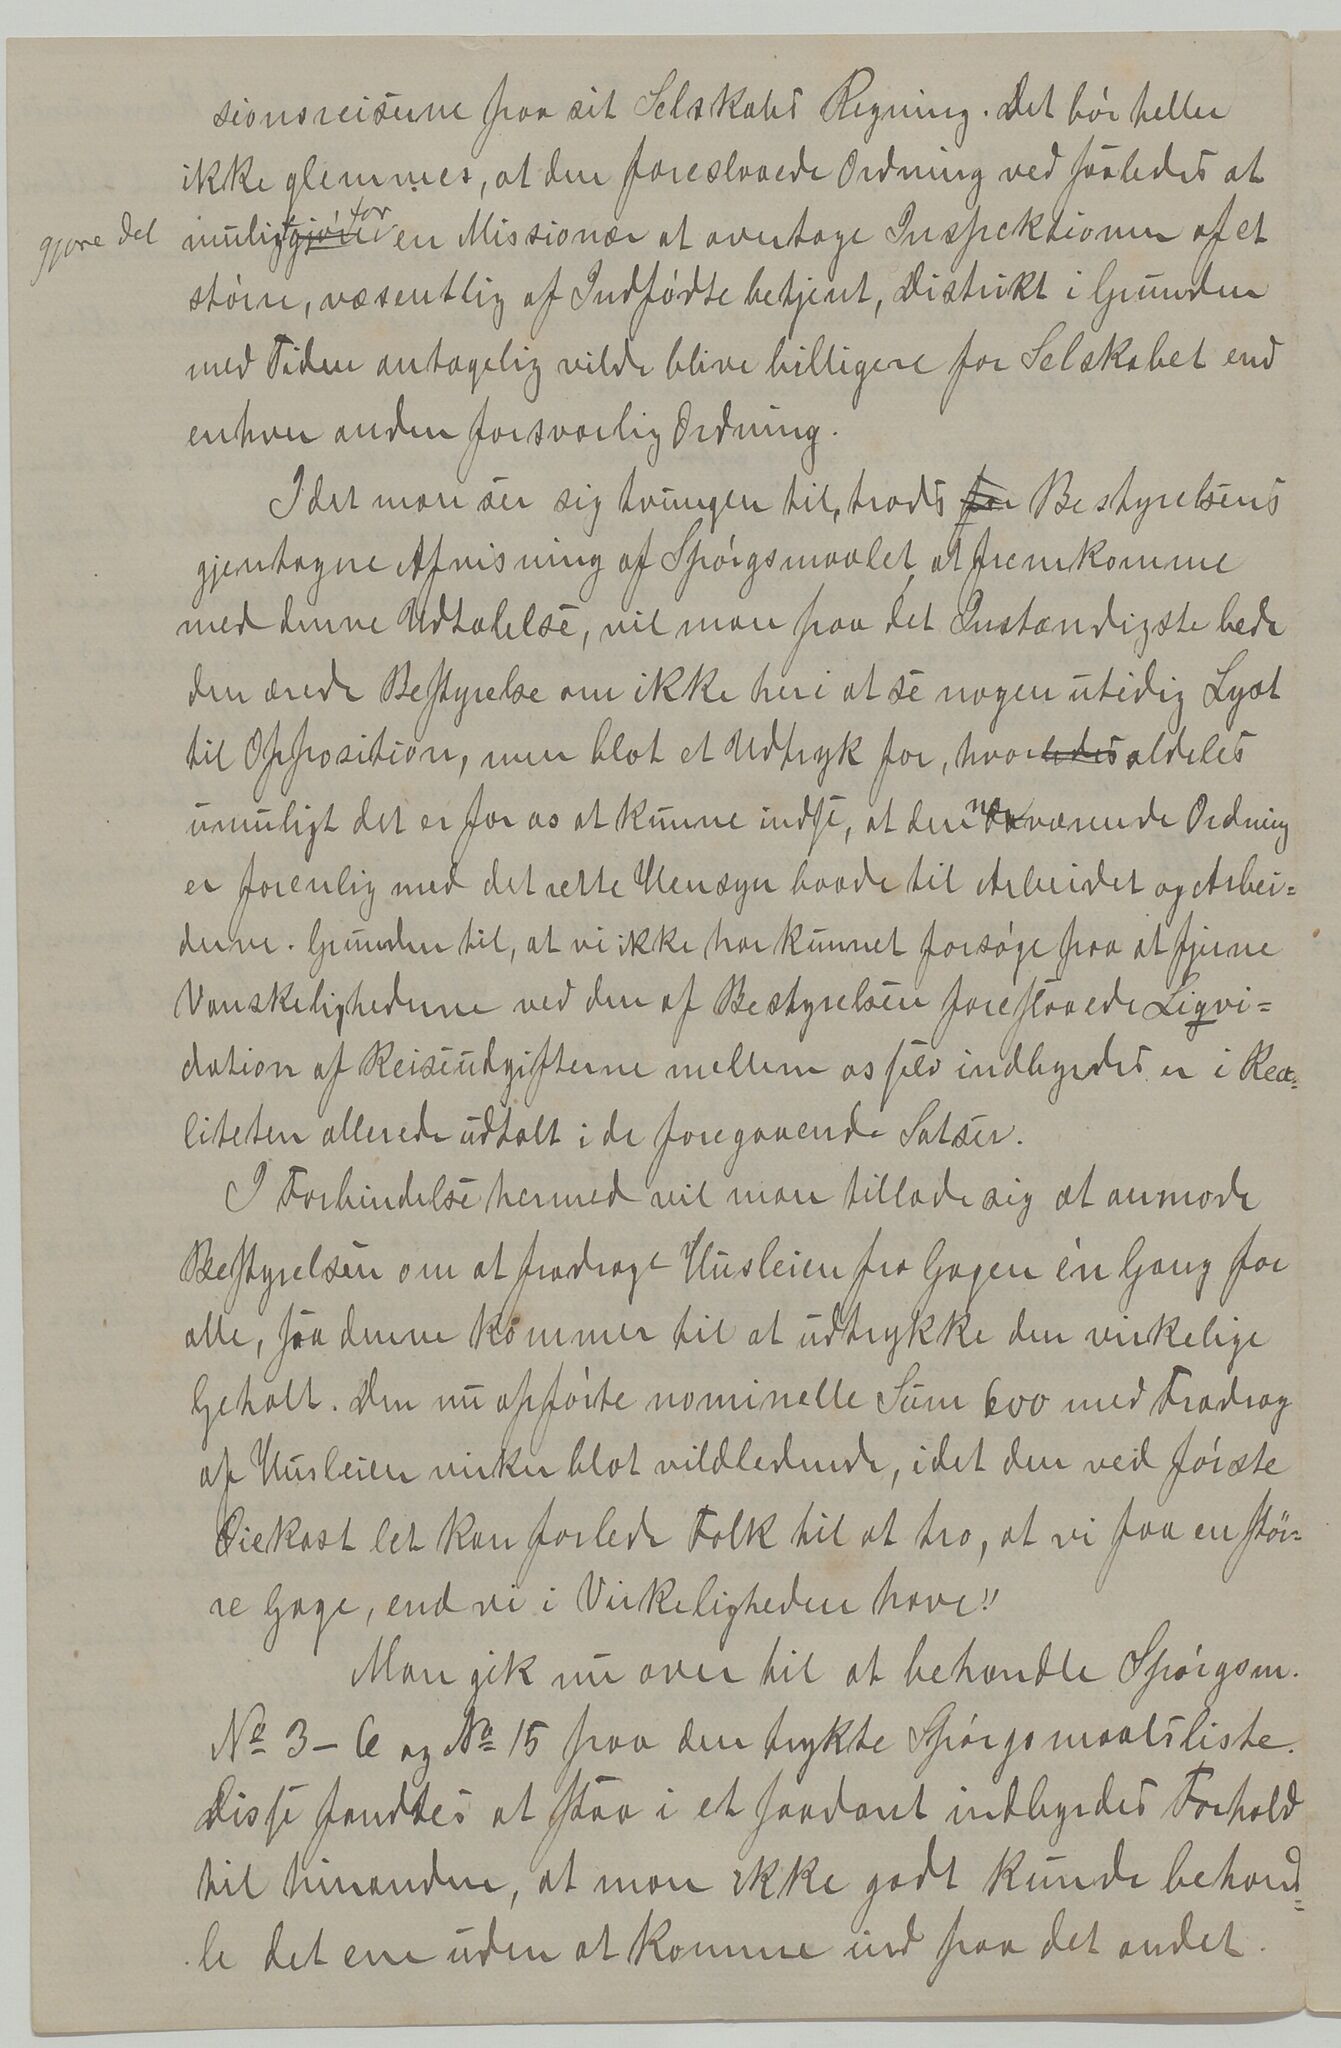 sionsreiserne paa sit Selskabs Regning. Det bör heller
ikke glemmes, at den foreslaaede Ordning ved saaledes at
gjøre det muligt gjöre for en Missionær at overtage Inspektionen af et
större, væsentlig af Indfödte betjent, Distrikt i Grunden
med Tiden antagelig vilde blive billigere for Selskabet end
enhver anden forsvarlig Ordning.
Idet man ser sig tvungen til, trods for Bestyrelsens
gjentagne Afvisning af Spörgsmaalet, at fremkomme
med denne Udtalelse, vil man paa det Instændigste bede
den ærede Bestyrelse om ikke heri at se nogen utidig Lyst
til Opposition, men blot et Udtryk for, hvorledes aldeles
umuligt det er for os at kunne indse, at den nuværende Ordning
er forenlig med det rette Hensyn baade til Arbeidet og Arbei=
derne. Grunden til, at vi ikke har kunnet forsöge paa at fjerne
Vanskelighederne ved den af Bestyrelsen foreslaaede Liqvi=
dation af Reiseudgifterne mellem os selv indbyrdes er i Rea=
liteten allerede udtalt i de foregaaende Satser.
I Forbindelse hermed vil man tillade sig at anmode
Bestyrelsen om at fradrage Husleien fra Gagen én Gang for
alle, saa denne kommer til at udtrykke den virkelige
Gehalt. Den nu opförte nominelle Sum 600 med Fradrag
af Husleien virker blot vildledende, idet den ved förste
Öiekast let kan forlede Folk til at tro, at vi faa en stör=
re Gage, end vi i Virkeligheden have!!
Man gik nu over til at behandle Spörgsm.
No 3 – 6 og No 15 paa den trykte Spörgsmaalsliste.
Disse fandtes at staa i et saadant indbyrdes Forhold
til hinanden, at man ikke godt kunde behand=
le det ene uden at komme ind paa det andet.